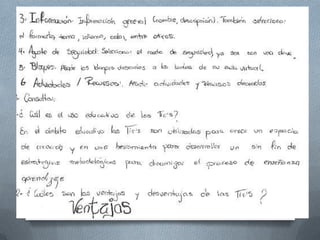 3- Información: Información general (nombre, descripción). También seleccionar
el formato, tema, idioma, color, entre otros.
4- Ajuste de Seguridad: Seleccionar el modo de seguridad, ya sea con una clave.
5- Bloques: Añadir los bloques deseados a los lados de su aula virtual.
6 Actividades / Recursos: Añadir actividades y recursos deseados
- Consultar:
- ¿Cuál es el uso educativo de las Tic's?
En el ámbito educativo las Tic's son utilizadas para crear un espacio
de creación y en una herramienta para desarrollar un sin fin de
estrategias metodológicas para dinamizar el proceso de enseñanza
aprendizaje
2- ¿Cuáles son las ventajas y desventajas de las Tic's?
Ventajas